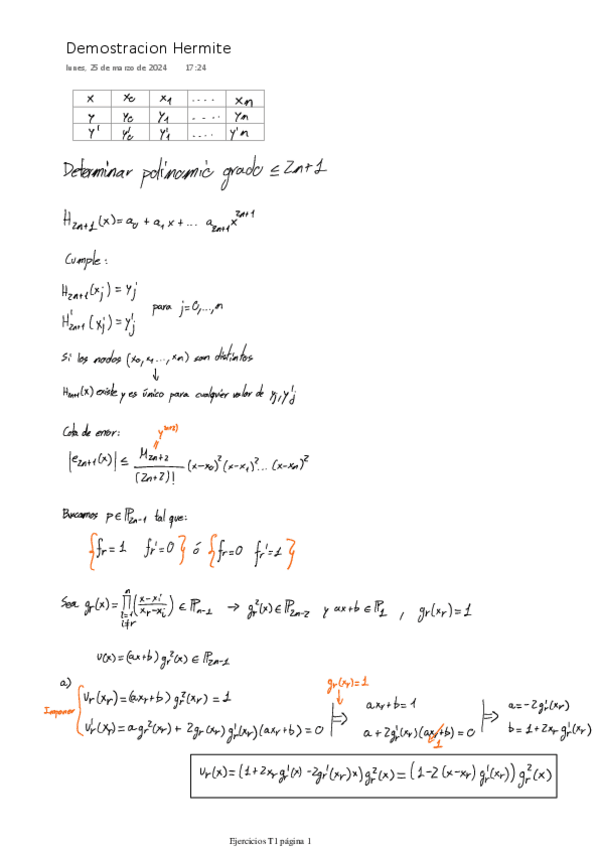 Demostracion Hermite
lunes, 25 de marzo de 2024 17:24
x x₀ x₁ .... xn
y y₀ y₁ .... yn
y' y'₀ y'₁ .... y'n
Determinar polinomio grado ≤ 2n+1
H₂ₙ₊₁(x) = a₀ + a₁x + ... a₂ₙ₊₁x²ⁿ⁺¹
Cumple:
H₂ₙ₊₁(xj) = yj
para j=0,...,n
H'₂ₙ₊₁(xj) = y'j
Si los nodos (x₀, x₁ ..., xn) son distintos
↓
H₂ₙ₊₁(x) existe y es único para cualquier valor de yj, y'j
Cota de error: y²ⁿ⁺²⁾
|e₂ₙ₊₁(x)| ≤ M₂ₙ₊₂/(2n+2)! (x-x₀)²(x-x₁)²... (x-xn)²
Buscamos p∈ℙ₂ₙ₋₁ tal que:
{fr = 1 fr' = 0} ó {fr = 0 fr' = 1}
Sea gr(x) = ∏ⁿ i=1 i≠r ((x-xi)/(xr-xi)) ∈ ℙₙ₋₁ → gr²(x) ∈ ℙ₂ₙ₋₂ y ax+b ∈ ℙ₁ , gr(xr) = 1
v(x) = (ax+b) gr²(x) ∈ ℙ₂ₙ₋₁
a) gr(xr)=1
Imponer { vr(xr) = (axr+b) gr²(xr) = 1 ⊨> axr+b = 1 ⊨> a = -2gr'(xr)
vr'(xr) = a gr²(xr) + 2gr(xr) gr'(xr)(axr+b) = 0 a + 2gr'(xr)(axr+b) = 0 b = 1+2xr gr'(xr)
1
vr(x) = (1+2xr gr'(x) -2gr'(xr)x) gr²(x) = (1-2(x-xr) gr'(xr)) gr²(x)
Ejercicios T1 página 1